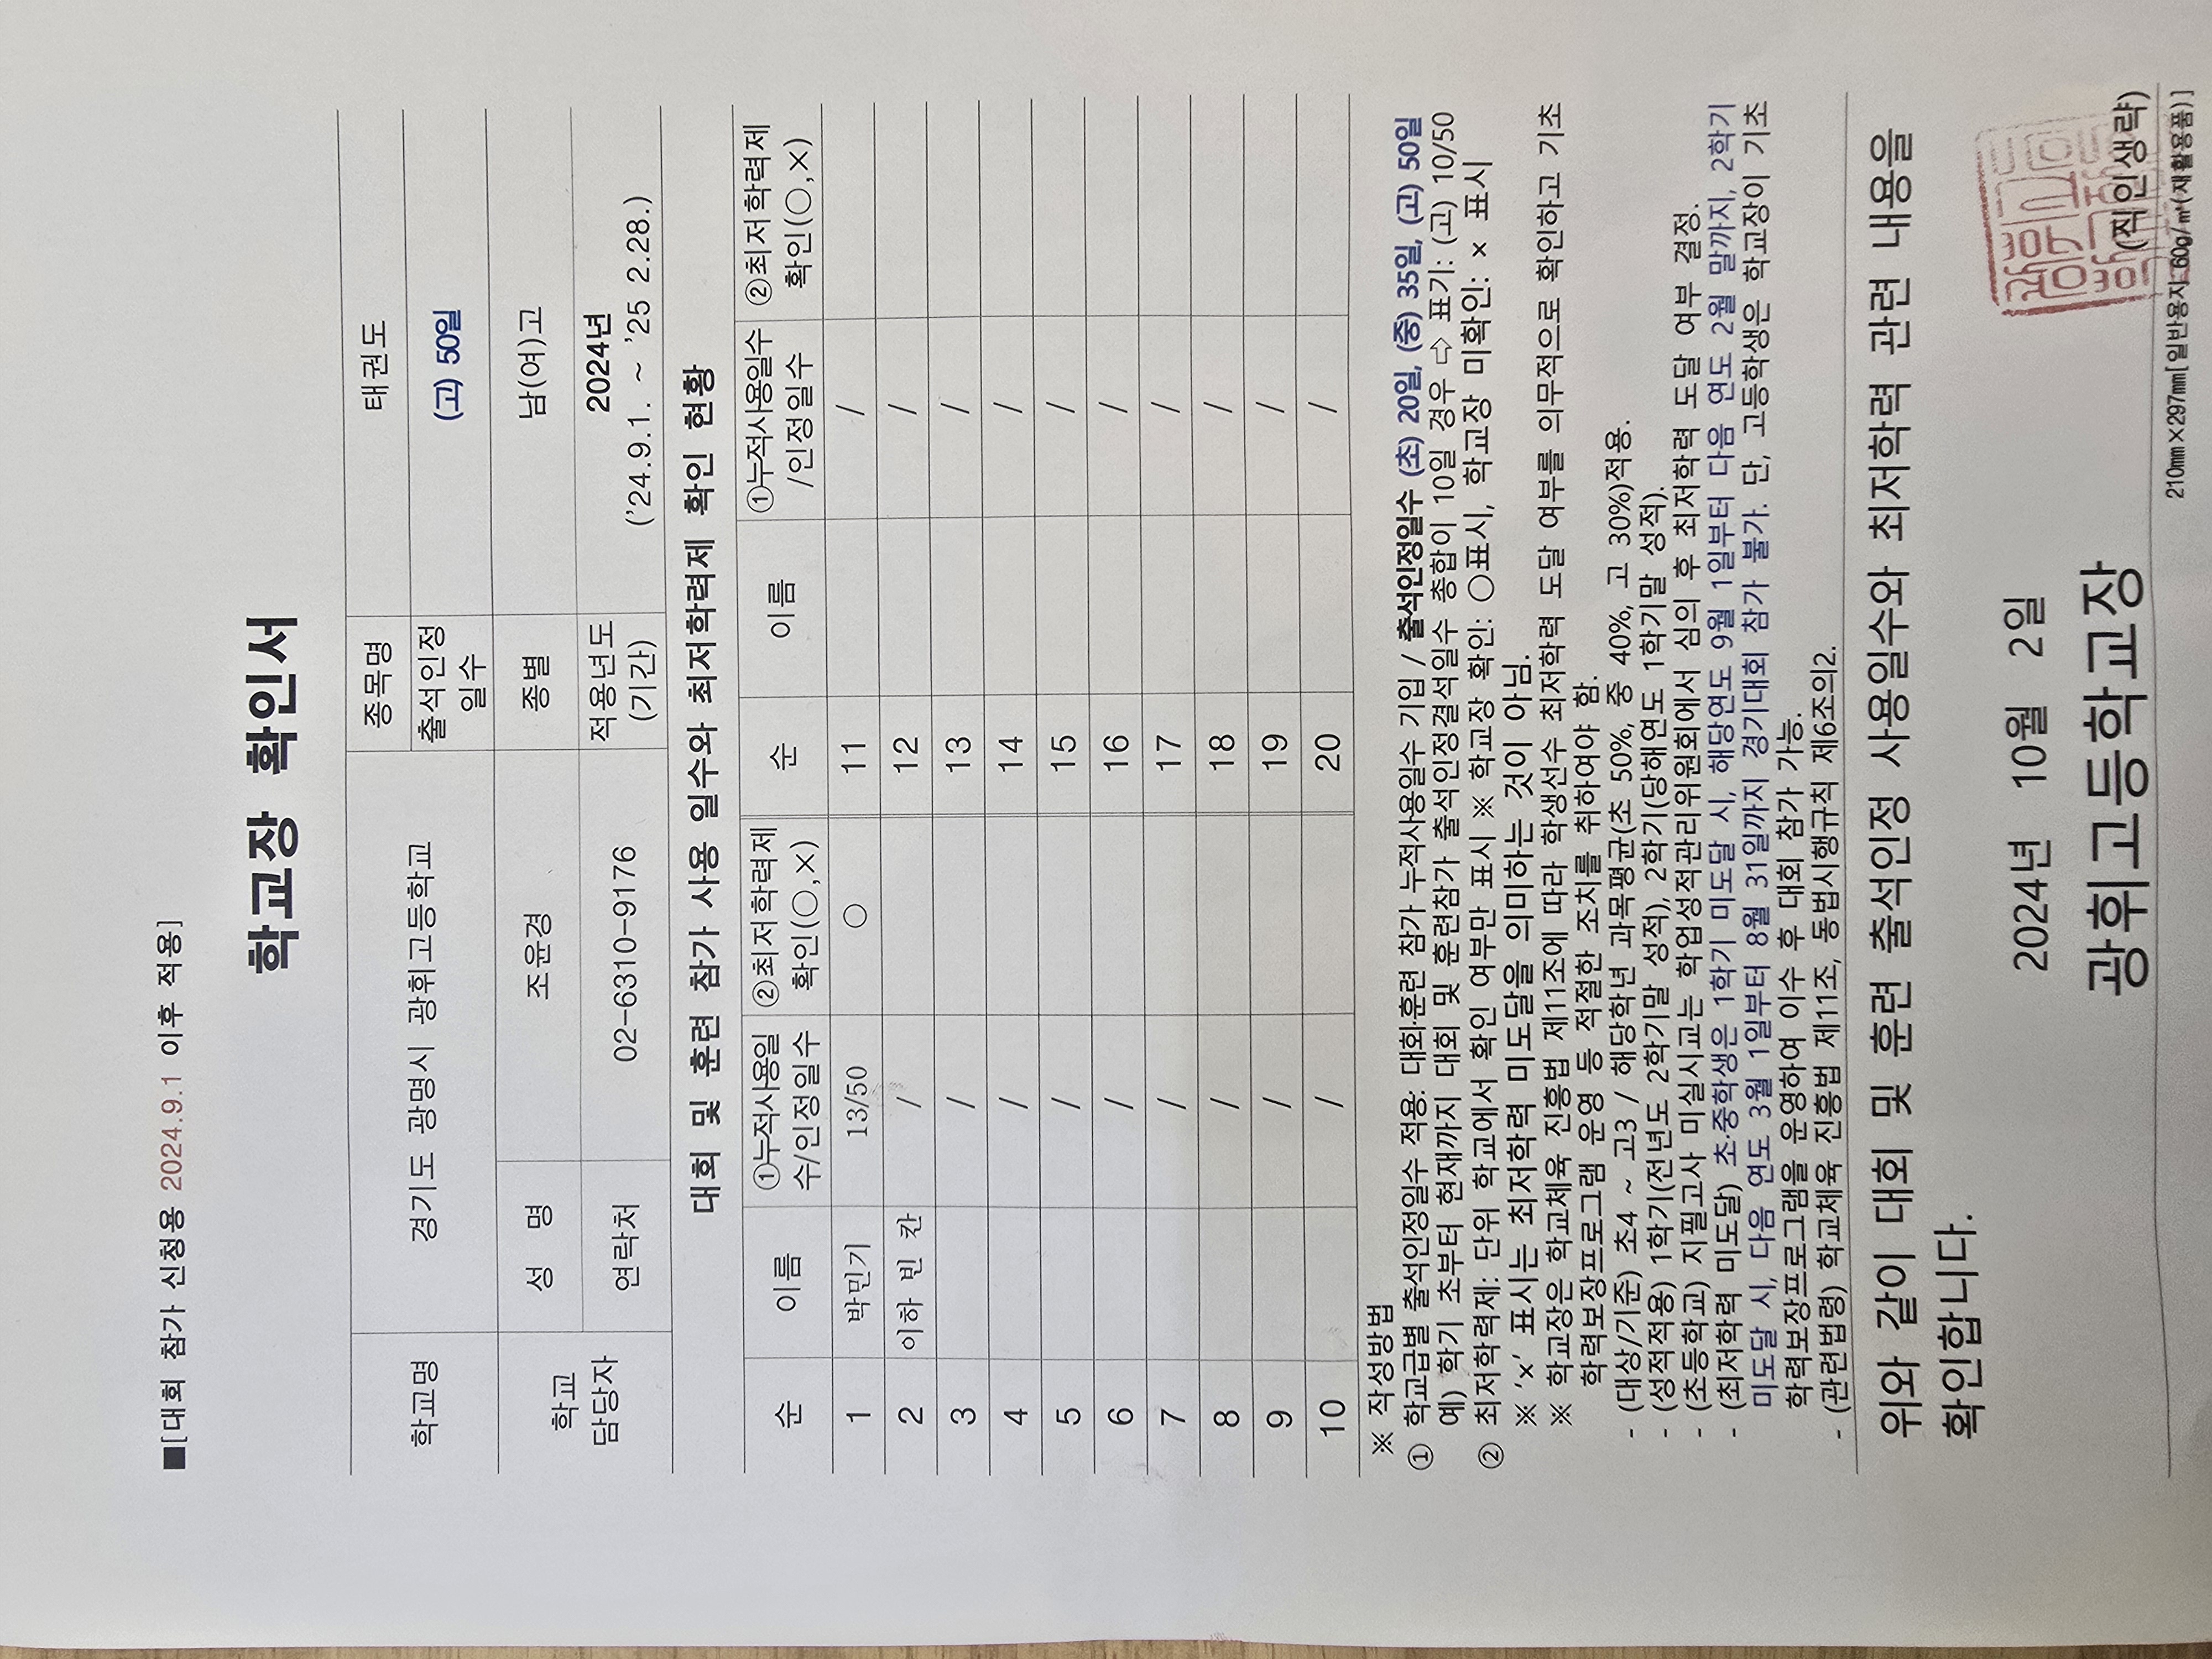 ■[대회 참가 신청용 2024.9.1 이후 적용]
학교장 확인서
학교명 경기도 광명시 광휘고등학교 종목명 태권도
출석인정 일수 (고) 50일
학교 담당자 성 명 조윤경 종별 남(여)고
연락처 02-6310-9176 적용년도 (기간) 2024년
('24.9.1. ~ '25 2.28.)
대회 및 훈련 참가 사용 일수와 최저학력제 확인 현황
순 이름 ①누적사용일수/인정일수 ②최저학력제 확인(○,×) 순 이름 ①누적사용일수/인정일수 ②최저학력제 확인(○,×)
1 박민기 13/50 ○ 11 /
2 이하 빈 칸 / 12 /
3 / 13 /
4 / 14 /
5 / 15 /
6 / 16 /
7 / 17 /
8 / 18 /
9 / 19 /
10 / 20 /
※ 작성방법
① 학교급별 출석인정일수 적용: 대회·훈련 참가 누적사용일수 기입 / 출석인정일수 (초) 20일, (중) 35일, (고) 50일
예) 학기 초부터 현재까지 대회 및 훈련참가 출석인정결석일수 총합이 10일 경우 ⇨ 표기: (고) 10/50
② 최저학력제: 단위 학교에서 확인 여부만 표시 ※ 학교장 확인: ○표시, 학교장 미확인: × 표시
※ '×' 표시는 최저학력 미도달을 의미하는 것이 아님.
※ 학교장은 학교체육 진흥법 제11조에 따라 학생선수 최저학력 도달 여부를 의무적으로 확인하고 기초
학력보장프로그램 운영 등 적절한 조치를 취하여야 함.
- (대상/기준) 초4 ~ 고3 / 해당학년 과목평균(초 50%, 중 40%, 고 30%)적용.
- (성적적용) 1학기(전년도 2학기말 성적), 2학기(당해연도 1학기말 성적).
- (초등학교) 지필고사 미실시교는 학업성적관리위원회에서 심의 후 최저학력 도달 여부 결정.
- (최저학력 미도달) 초·중학생은 1학기 미도달 시, 해당연도 9월 1일부터 다음 연도 2월 말까지, 2학기
미도달 시, 다음 연도 3월 1일부터 8월 31일까지 경기대회 참가 불가. 단, 고등학생은 학교장이 기초
학력보장프로그램을 운영하여 이수 후 대회 참가 가능.
- (관련법령) 학교체육 진흥법 제11조, 동법시행규칙 제6조의2.
위와 같이 대회 및 훈련 출석인정 사용일수와 최저학력 관련 내용을
확인합니다.
2024년 10월 2일
광휘고등학교장 (직인생략)
210mm×297mm[일반용지 60g/㎡(재활용품)]